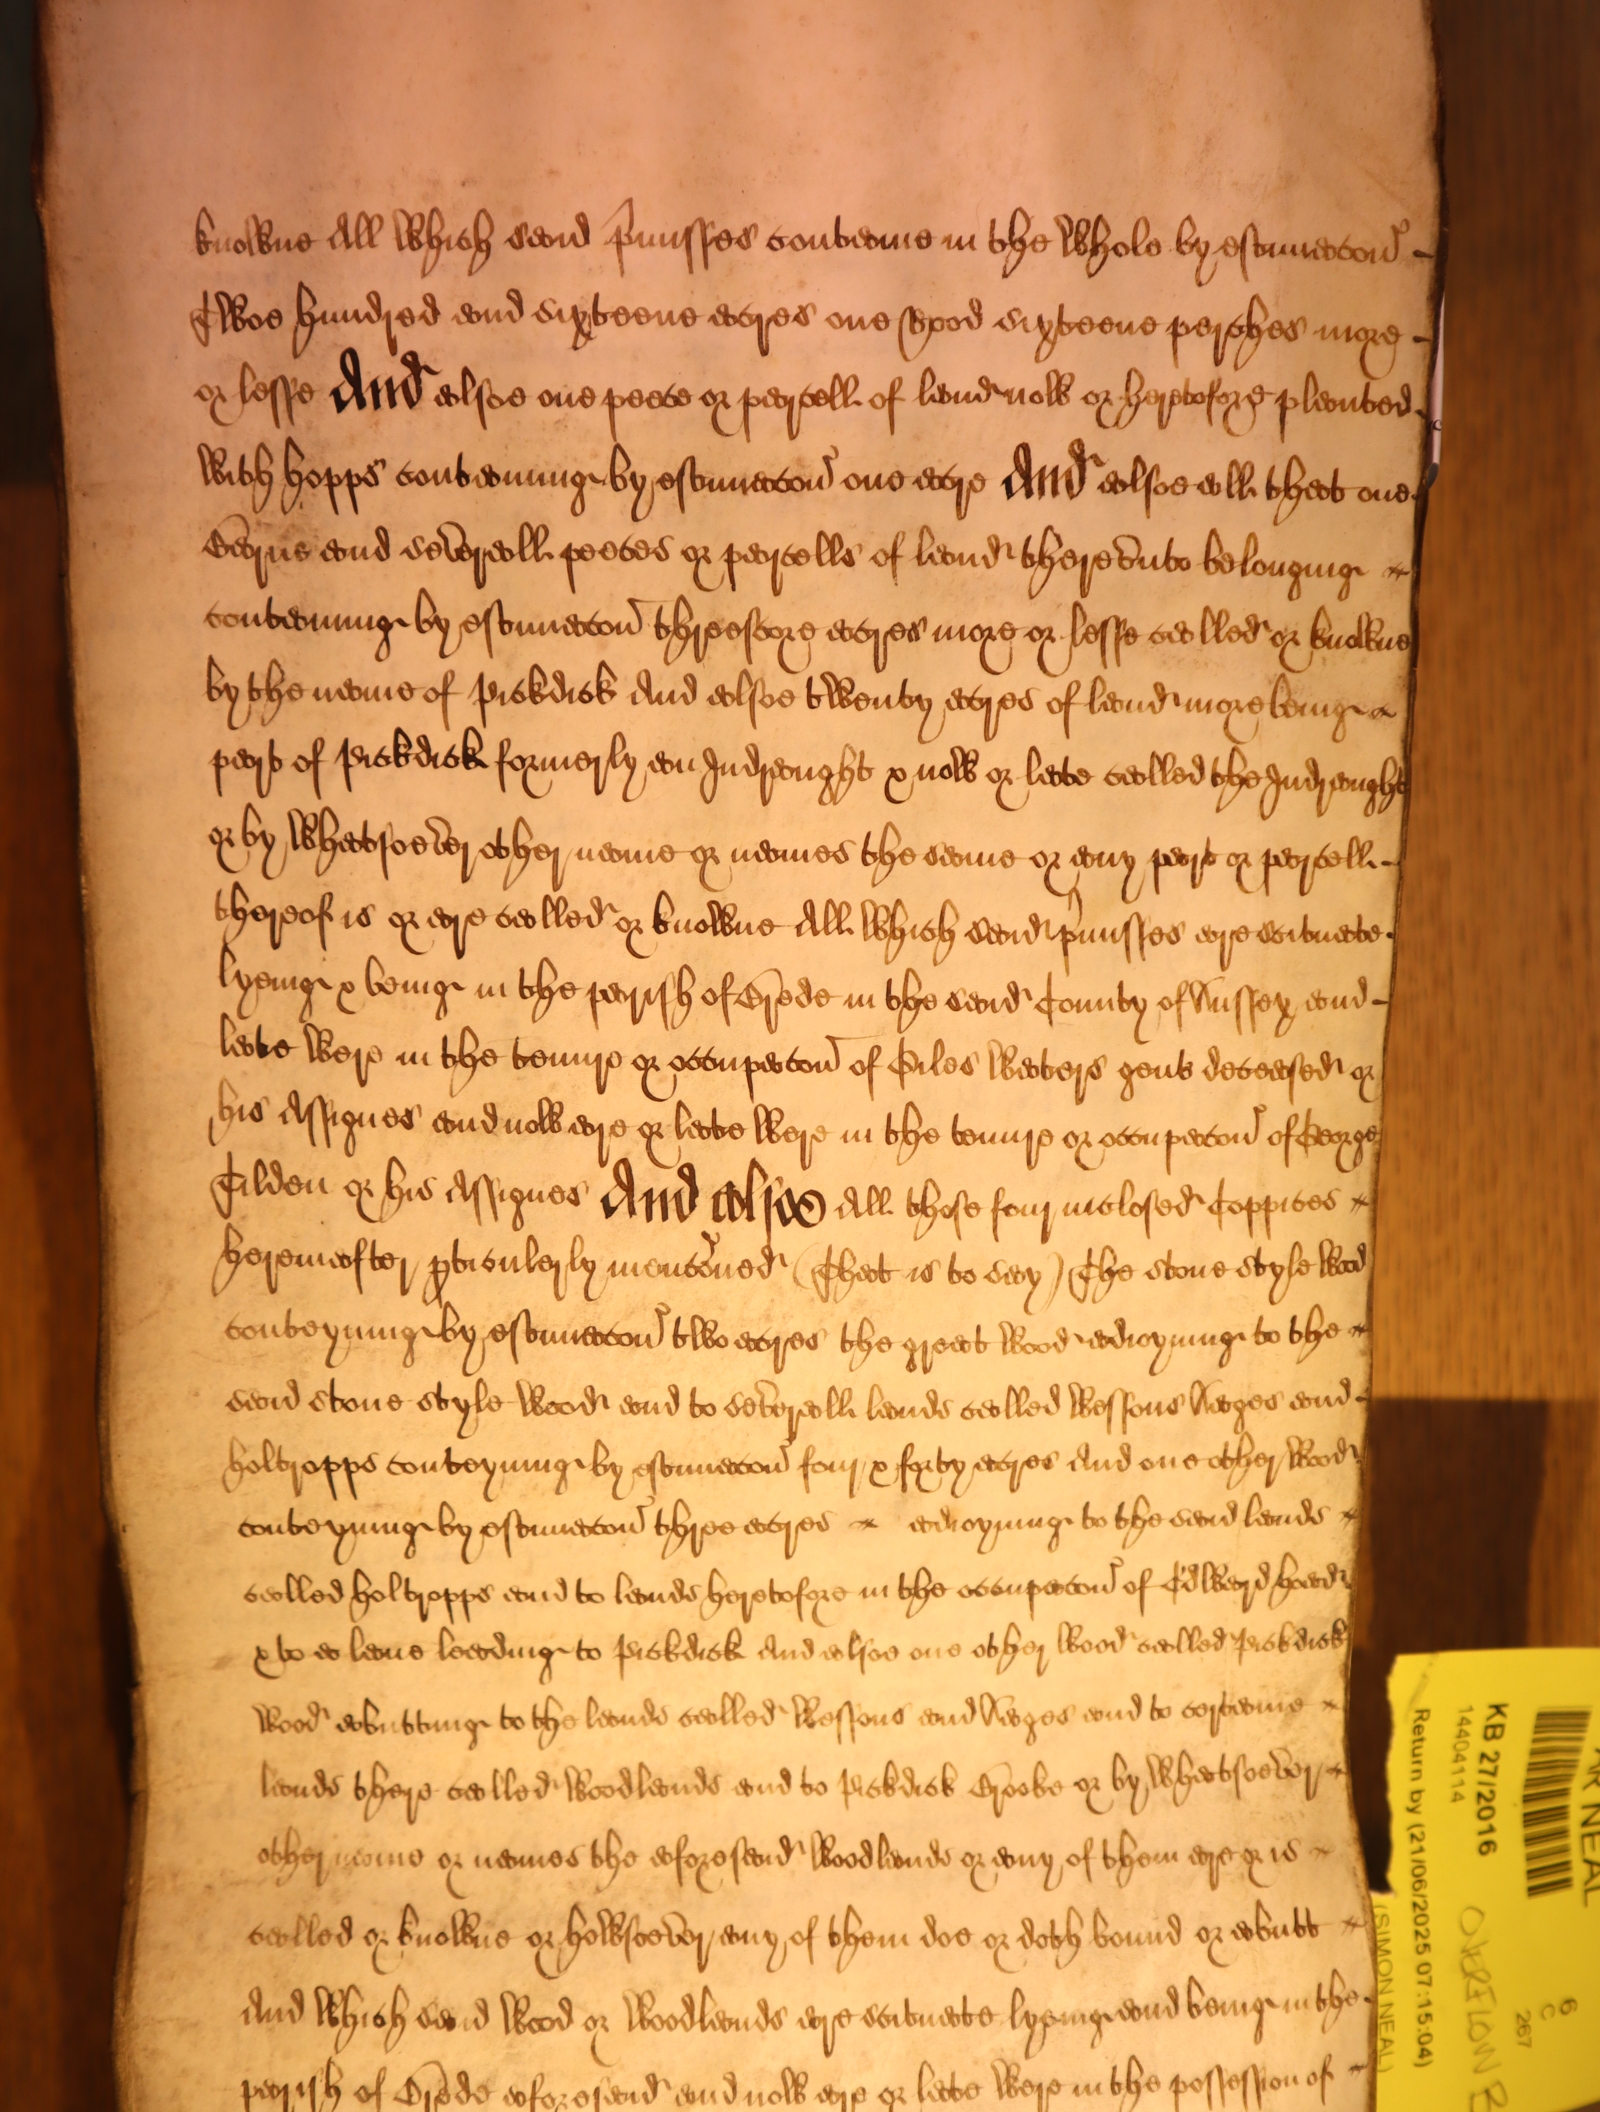 knowne All which said p̄misses containe in the whole by estimacon̄
Twoe hundred and sixteene acres one Rood sixteene perches more
or lesse And alsoe one peece or parcell of land now or heretofore planted
with hopps containing by estimacon̄ one acre And alsoe all that one
and sev̄erall peeces or parcells of land therev̄nto belonging
containing by estimacon̄ threescore acres more or lesse called or knowne
by the name of Pickdick And alsoe twenty acres of land more being
part of Pickdick formerly an Indraught & now or late called the Indraught
or by whatsoev̄er other name or names the same or any part or parcell
thereof is or are called or knowne All which said p̄misses are scituate
lyeing & being in the parish of Brede in the said County of Sussex and
late were in the tenure or occupacon̄ of Giles Waters gent deceased or
his Assignes and now are or late were in the tenure or occupacon̄ of George
Tilden or his Assignes And alsoe All those four inclosed Coppices
hereinafter pticulerly mencōned (That is to say) The stone style wood
conteyning by estimacon̄ two acres the great wood adioyning to the
said stone style wood and to sev̄erall lands called Wessons Hages and
holtropps conteyning by estimacon̄ four & forty acres And one other wood
conteyning by estimacon̄ three acres adioyning to the said lands
called holtropps and to lands heretofore in the occupacon̄ of Edward
& to a lane leading to Pickdick And alsoe one other wood called Pickdick
wood abutting to the lands called Wessons and Hages and to certaine
lands there called Woodlands and to Pickdick Brooke or by whatsoev̄er
other name or names the aforesaid woodlands or any of them are or is
called or knowne or howsoev̄er any of them doe or doth bound or abutt
And which said wood or woodlands are scituate lyeing and being in the
parish of Brede aforesaid and now are or late were in the possession of
KB 27/2016
14404114
Return by (21/06/2025 07:15:04)
(SIMON NEAL)
OVERFLOW
6
C
267
NEAL